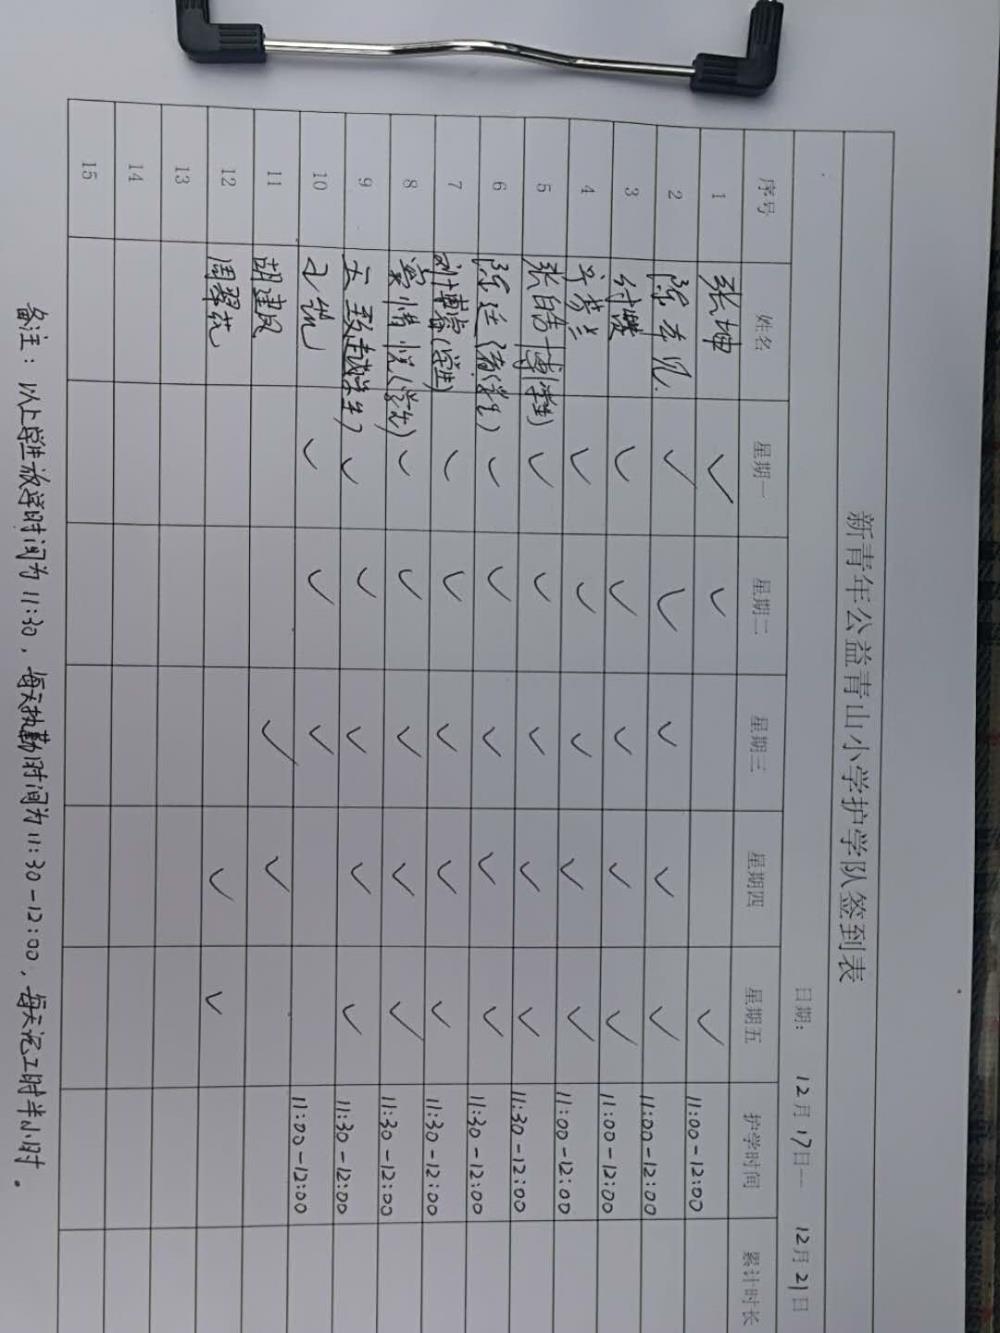 新青年公益青山小学护学队签到表
日期： 12月17日— 12月21日
序号 姓名 星期一 星期二 星期三 星期四 星期五 护学时间 累计时长
1 张坤 ✓ ✓ ✓ 11:00-12:00
2 ✓ ✓ ✓ ✓ ✓ 11:00-12:00
3 ✓ ✓ ✓ ✓ ✓ 11:00-12:00
4 ✓ ✓ ✓ ✓ ✓ 11:00-12:00
5 张皓博(学生) ✓ ✓ ✓ ✓ ✓ 11:30-12:00
6 (学生) ✓ ✓ ✓ ✓ ✓ 11:30-12:00
7 刘博睿(学生) ✓ ✓ ✓ ✓ ✓ 11:30-12:00
8 黄惜悦(学生) ✓ ✓ ✓ ✓ ✓ 11:30-12:00
9 (学生) ✓ ✓ ✓ ✓ ✓ 11:30-12:00
10 ✓ ✓ ✓ 11:00-12:00
11 胡建凤 ✓ ✓
12 周翠花 ✓ ✓
13
14
15
备注：以上学生放学时间为11:30，每天执勤时间为11:30-12:00，每天记工时半小时.